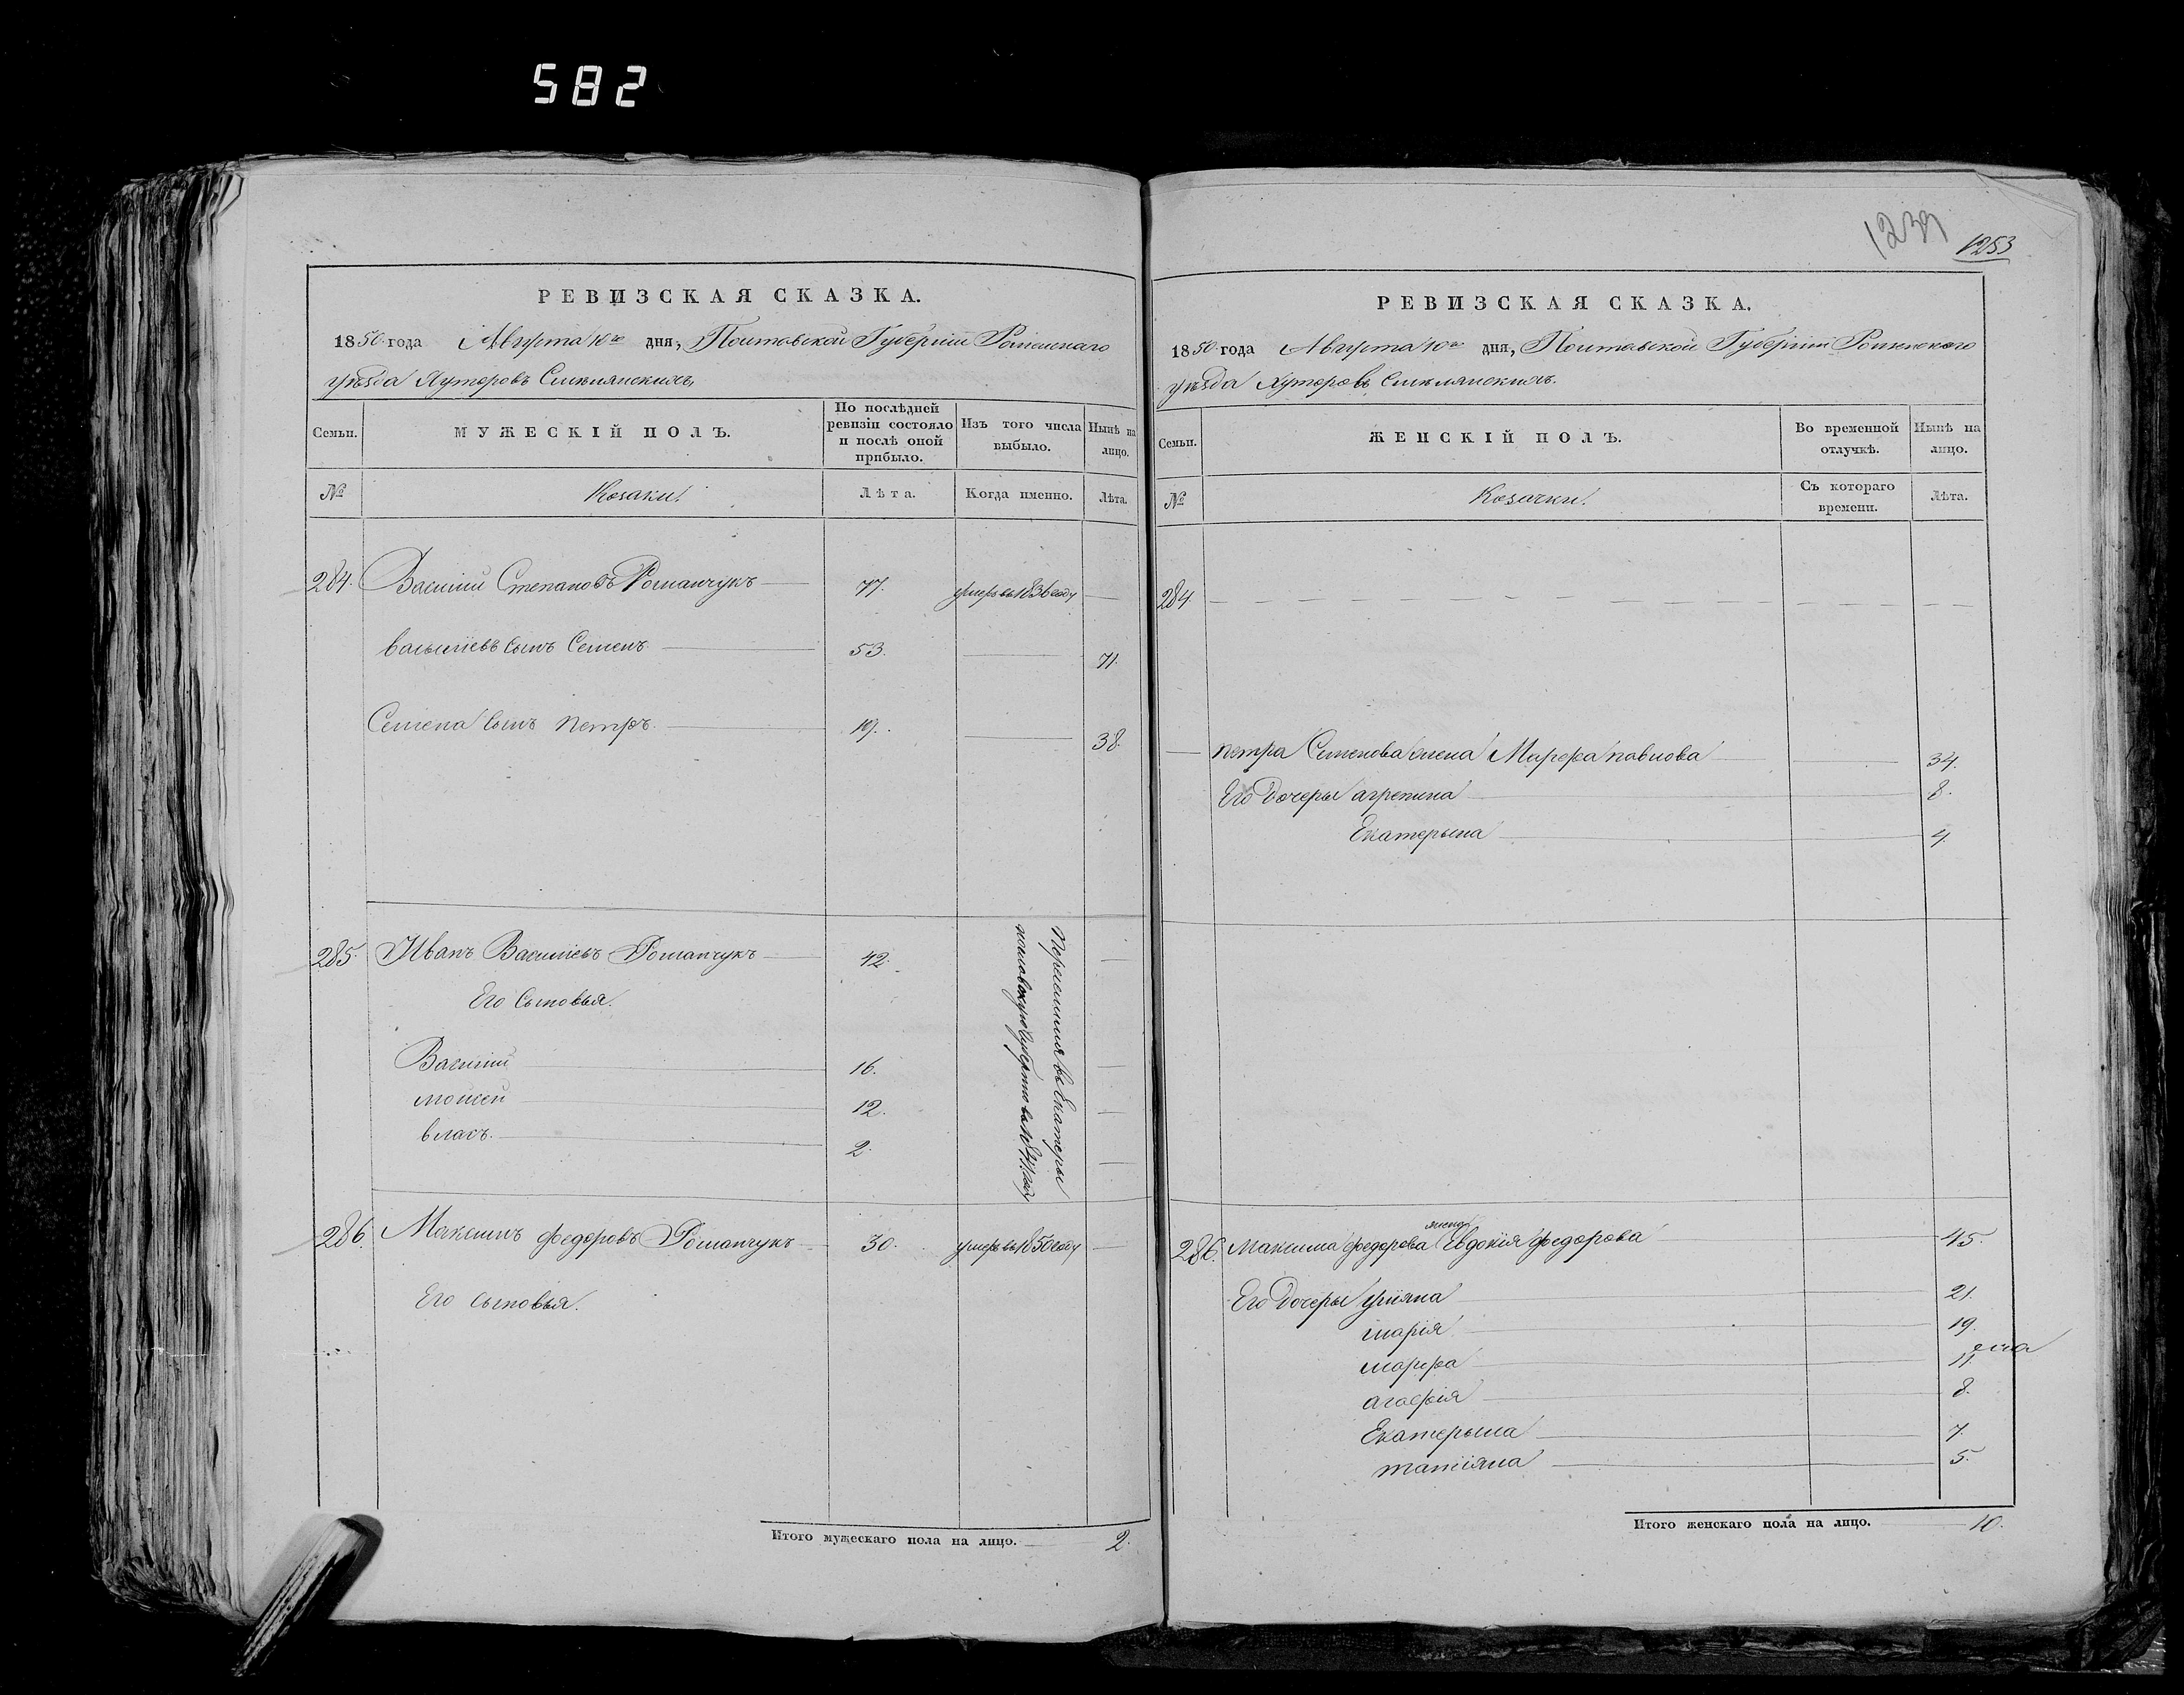 582
1239
1253
РЕВИЗСКАЯ СКАЗКА.
1850 года Августа 10го дня, Полтавской Губерніи Роменскаго
уѣзда Хуторовъ Смѣлянскихъ,
Семьи.
МУЖЕСКІЙ ПОЛЪ.
По послѣдней ревизіи состояло и послѣ оной прибыло.
Изъ того числа выбыло.
Нынѣ на лицо.
№
Козаки.
Лѣта.
Когда именно.
Лѣта.
284. Василій Степановъ Романчукъ 77. умеръ въ 1836 году
васылiевъ сынъ Семенъ 53. 71.
Семена сынъ петръ. 19. 38.
285. Иванъ Василіевъ Романчукъ 42.
Его Сыновья.
Василій 16.
моисей 12.
власъ. 2.
286. Максимъ федоровъ Романчукъ 30. умеръ въ 1850 году
Его сыновья.
Итого мужескаго пола на лицо. 2.
РЕВИЗСКАЯ СКАЗКА.
1850 года Августа 10го дня, Полтавской Губерніи Роменского
уѣзда Хуторовъ Смѣлянскихъ.
Семьи.
ЖЕНСКІЙ ПОЛЪ.
Во временной отлучкѣ.
Нынѣ на лицо.
№
Козачки.
Съ котораго времени.
Лѣта.
284.
петра Семенова жена Марфа павлова 34.
Его дочеры агрепина 8.
Екатерына 4.
жена
286. Максима федорова Евдокія федорова 45.
Его дочеры уліяна 21.
марія 19.
марфа 11.
агафія 8.
Екатерына 7.
татіяна 5.
Итого женскаго пола на лицо. 10.